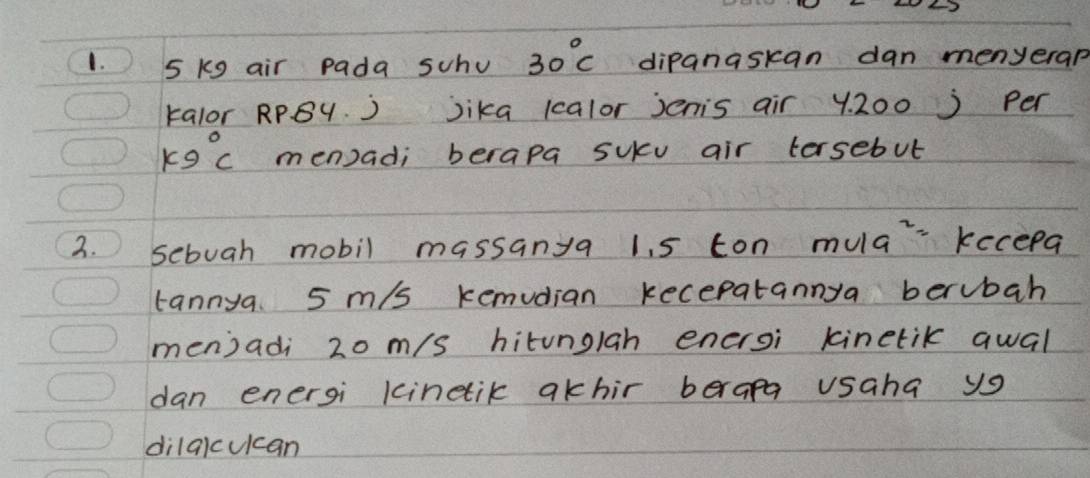 1. 5 kg air pada suhu 30°C dipanaskan dan menyerap
kalor RP.84. J Jika kalor jenis air 4.200 J Per
kg°C menjadi berapa suku air tersebut
2. sebuah mobil massanya 1,5 ton mula²= kecepa
tannya. 5 m/s kemudian kecepatannya berubah
menjadi 20 m/s hitunglah energi kinetik awal
dan energi kinetik akhir berapa usaha yg
dilakukan